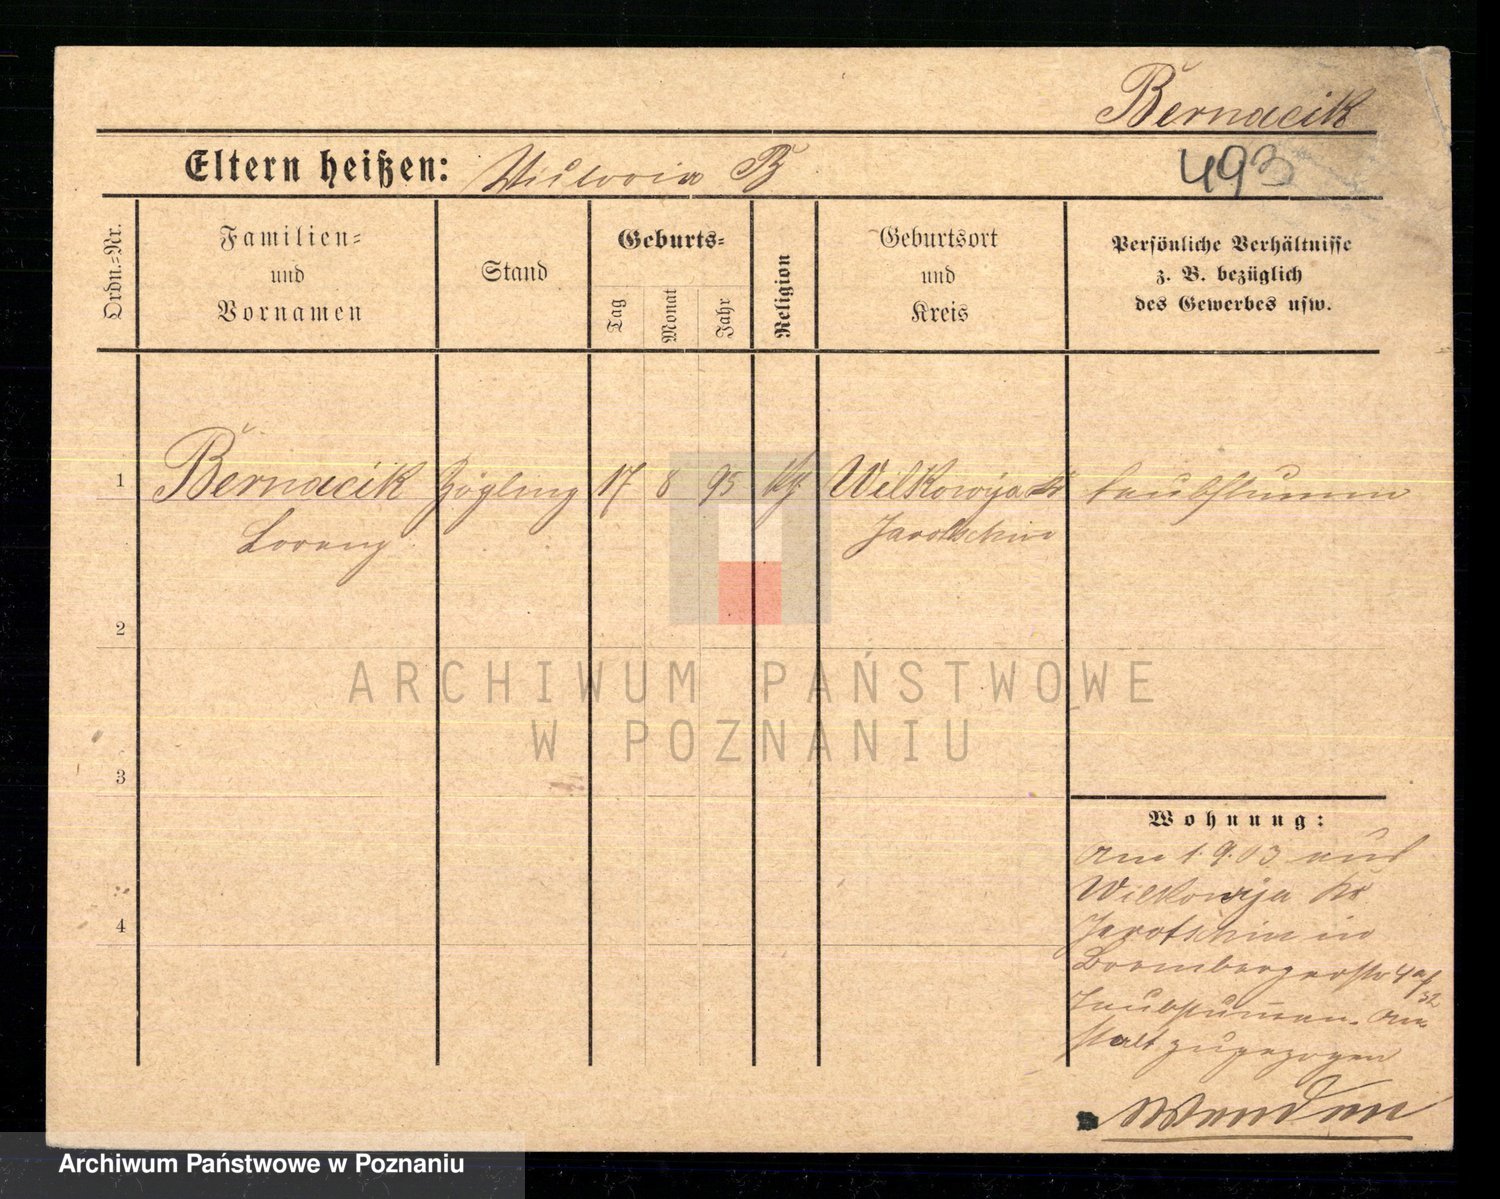 Bernacik
Eltern heißen: Victoria B
493
Ordn.-Nr.
Familien-
und
Vornamen
Stand
Geburts-
Tag
Monat
Jahr
Religion
Geburtsort
und
Kreis
Persönliche Verhältnisse
z. B. bezüglich
des Gewerbes usw.
1 Bernacik Zögling 17 8 95 Wilkowija Kr taubstumm
Lorenz Jarotschin
2
ARCHIWUM PAŃSTWOWE
W POZNANIU
3
Wohnung:
Am 1.9.03 aus
Wilkowija Kr
Jarotschin in
Brombergerstr 4a/
32
Taubstummen-An
stalt zugezogen
4
Wenden
Archiwum Państwowe w Poznaniu